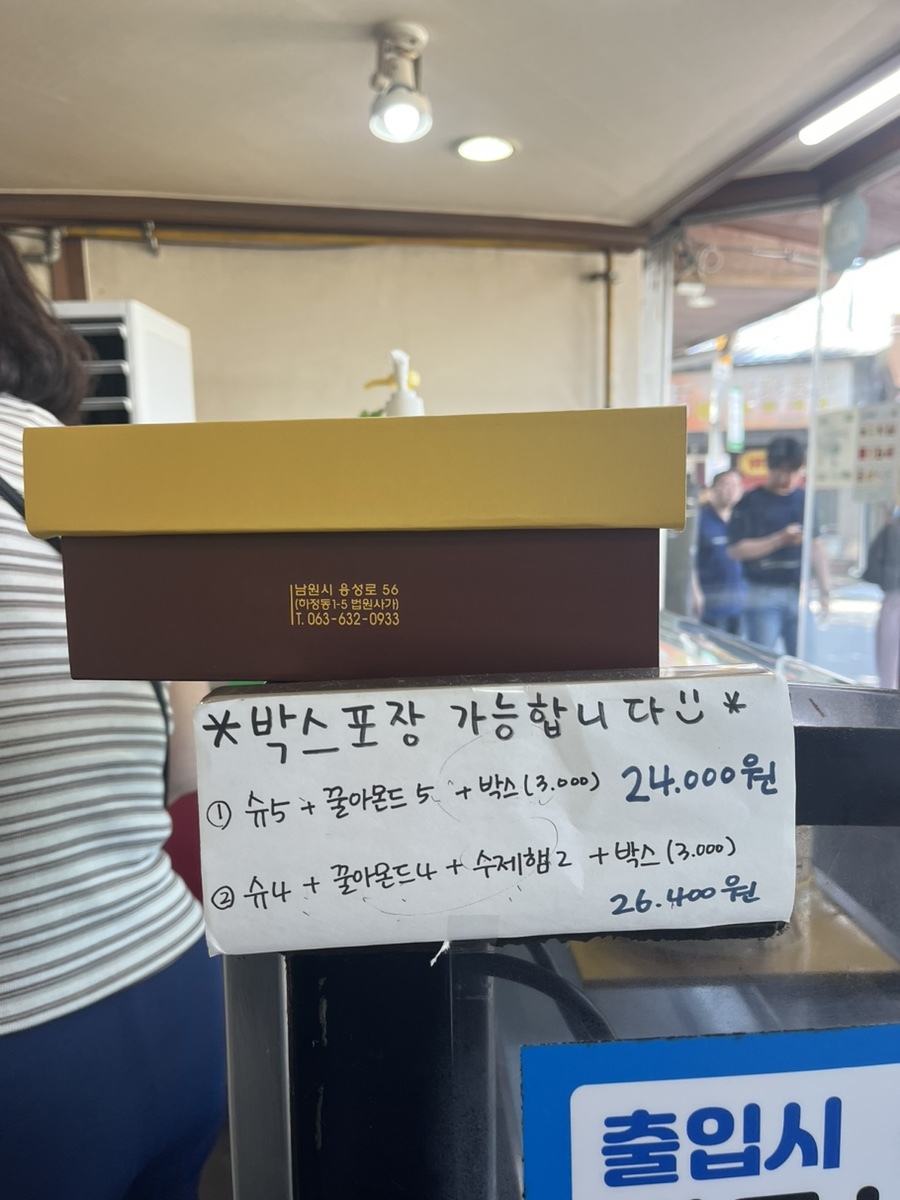 남원시 용성로 56
(하정동1-5 법원사가)
T. 063-632-0933
*박스포장 가능합니다 *
① 슈5 + 꿀아몬드 5 + 박스 (3.000) 24.000원
② 슈4 + 꿀아몬드4 + 수제햄2 + 박스 (3.000)
26.400원
출입시